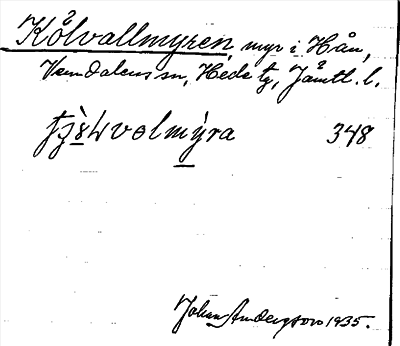 Kölvallmyren, myr i Hån,
Vemdalens sn, Hede tg, Jämtl. l.
348
Johan Andersson 1935.